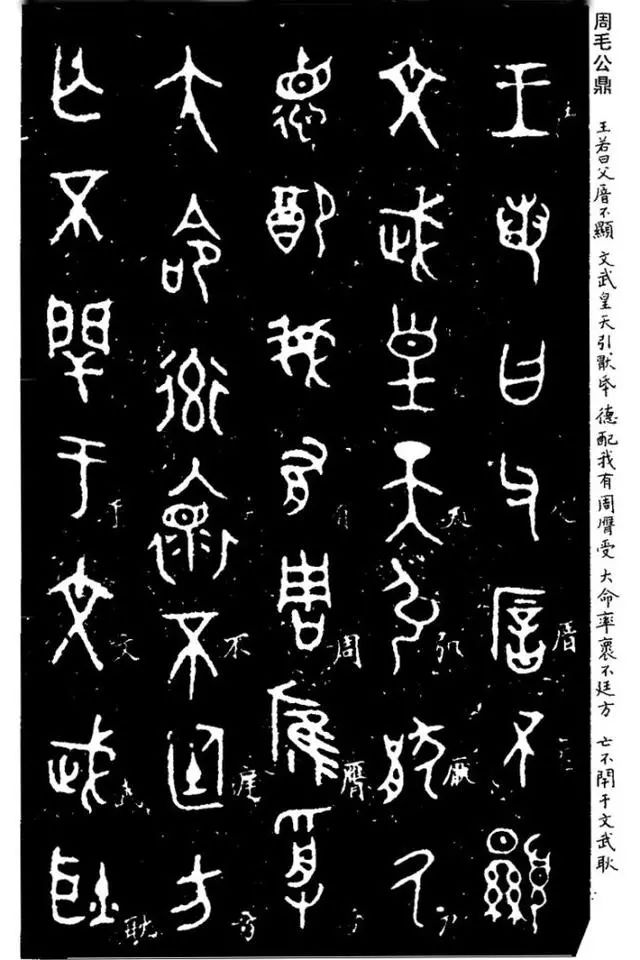 周毛公鼎
王若曰父厝不顯 文武皇天引猒氒 德配我有周膺受 大命率褱不廷方 亡不閈于文武耿
王若曰父厝不顯
文武皇天引猒氒
德配我有周膺受
大命率褱不廷方
亡不閈于文武耿
父厝不
天弘厥
有周膺
不庭方
于文武耿